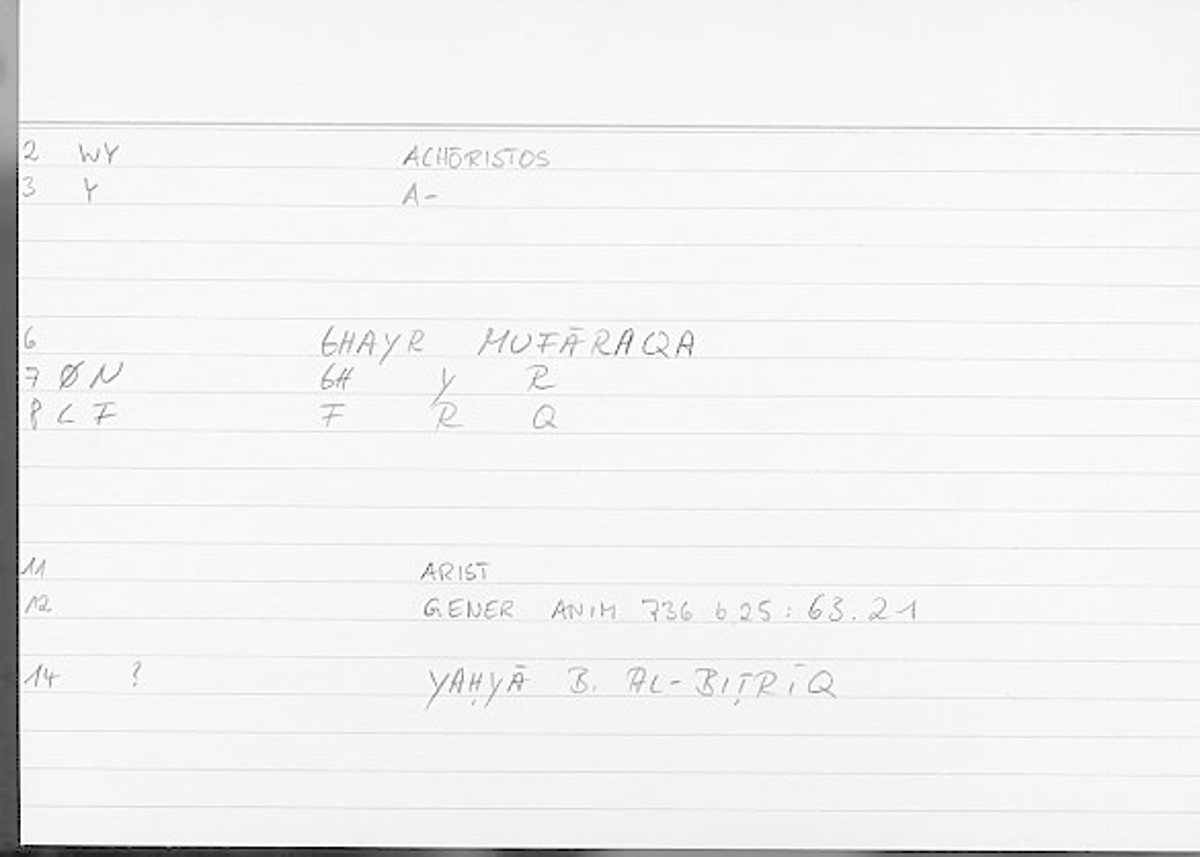 2 WY ACHŌRISTOS
3 Y A-
6 GHAYR MUFĀRAQA
7 ØN GH Y R
8 L F F R Q
11 ARIST
12 GENER ANIM 736 b 25 : 63.21
14 ? YAḤYĀ B. AL-BIṬRĪQ